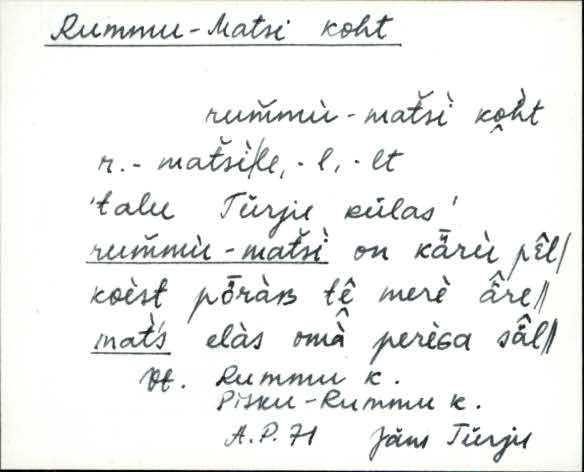 Rummu-Matsi koht
rum̆mù - mat̆sì ko̭h̀t
r. - mat̆sì/le, -l, -lt
'talu Tǖrju külas'
rum̆mù - mat̆sì on kǟrù pē̮̂l/
koèst pȫràʙ tê merè ǟ̂re//
mat̀'s elàs omà̂ perèɢa sǟ̂l//
Vt. Rummu k.
Pisku-Rummu k.
A.P. 71 Jäms Tǖrju